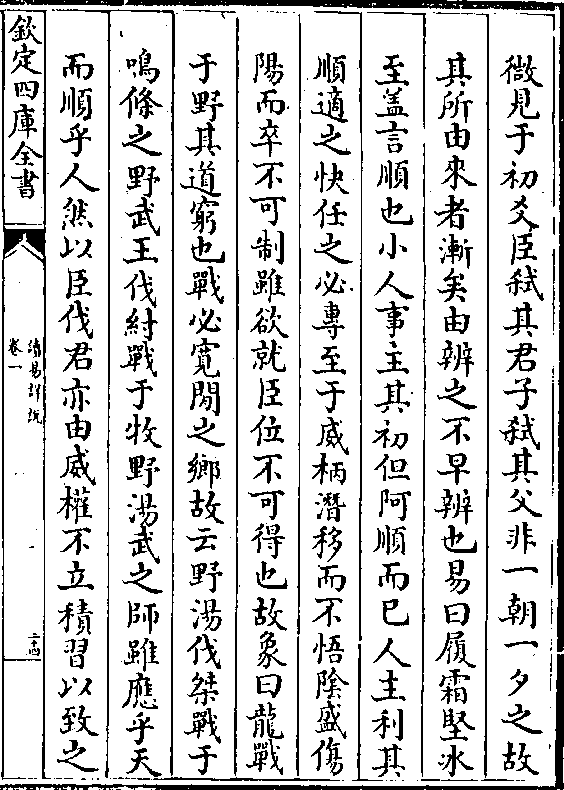 微見于初爻臣弑其君子弑其父非一朝一夕之故
其所由來者漸矣由辨之不早辨也易曰履霜堅冰
至蓋言順也小人事主其初但阿順而已人主利其
順適之快任之必專至于威柄潛移而不悟陰盛傷
陽而卒不可制雖欲就臣位不可得也故象曰龍戰
于野其道窮也戰必寛閒之鄉故云野湯伐桀戰于
鳴條之野武王伐紂戰于牧野湯武之師雖應乎天
而順乎人然以臣伐君亦由威權不立積習以致之
欽定四庫全書
讀易詳説
卷一
二十四